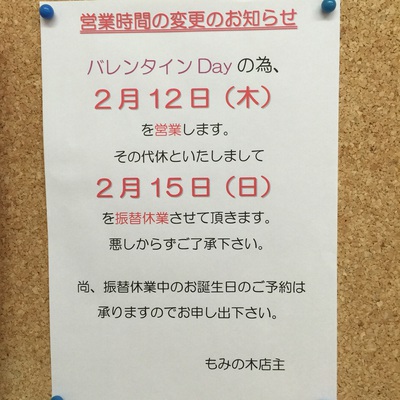 営業時間の変更のお知らせ
バレンタイン Day の為、
2月12日（木）
を営業します。
その代休といたしまして
2月15日（日）
を振替休業させて頂きます。
悪しからずご了承下さい。
尚、振替休業中のお誕生日のご予約は
承りますのでお申し出下さい。
もみの木店主